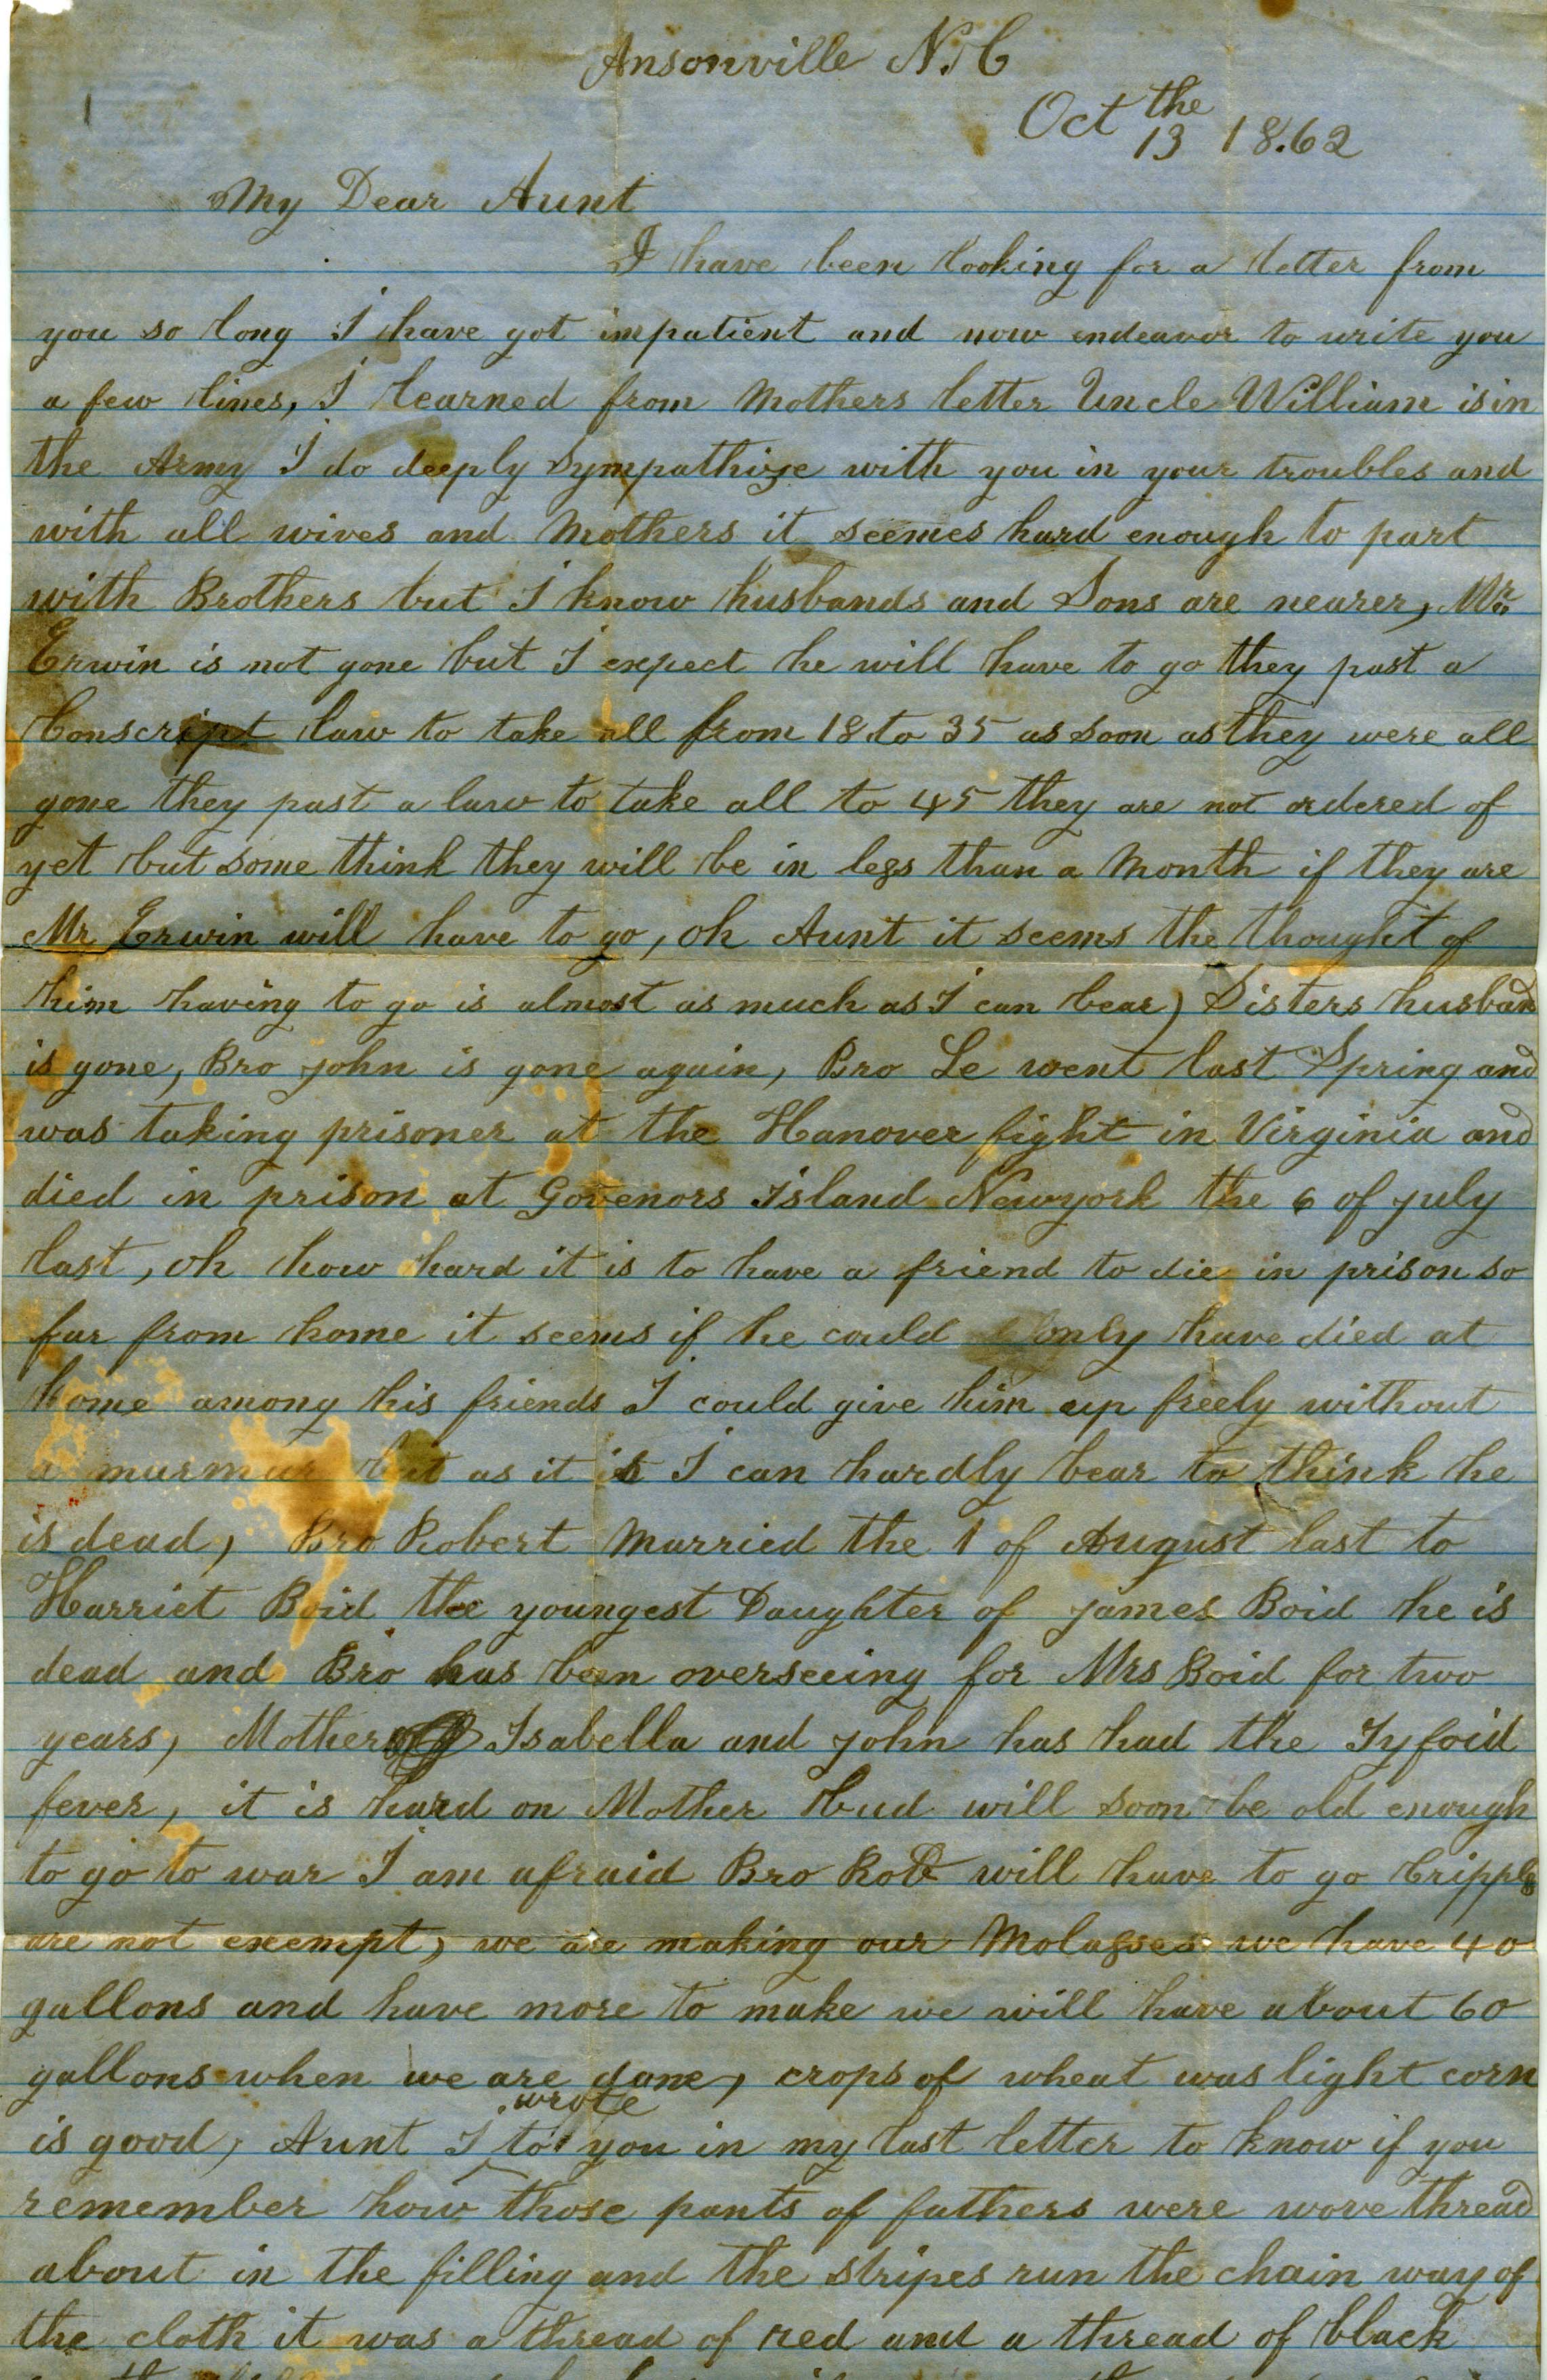 Ansonville N. C
Oct the 13 18.62
My Dear Aunt
I have been looking for a letter from
you so long I have got impatient and now endeavor to write you
a few lines, I learned from Mothers letter Uncle William is in
the Army I do deeply Sympathize with you in your troubles and
with all wives and Mothers it seemes hard enough to part
with Brothers but I know husbands and Sons are nearer, Mr.
Erwin is not gone but I expect he will have to go they past a
Conscript law to take all from 18 to 35 as soon as they were all
gone they past a law to take all to 45 they are not ordered of
yet but some think they will be in less than a Month if they are
Mr Erwin will have to go, oh Aunt it seems the thought of
him having to go is almost as much as I can bear) Sisters husband
is gone, Bro john is gone again, Bro Le went last Spring and
was taking prisoner at the Hanover fight in Virginia and
died in prison at Govenors Island Newyork the 6 of july
last, oh how hard it is to have a friend to die in prison so
far from home it seems if he could only have died at
home among his friends I could give him up freely without
a murmur but as it is I can hardly bear to think he
is dead, Bro Robert Married the 1 of August last to
Harriet Boid the youngest Daughter of james Boid he is
dead and Bro has been overseeing for Mrs Boid for two
years, Mother Isabella and john has had the Tyfoid
fever, it is hard on Mother Hud will soon be old enough
to go to war I am afraid Bro Rob will have to go Cripples
are not exempt, we are making our Molasses we have 40
gallons and have more to make we will have about 60
gallons when we are done, crops of wheat was light corn
is good, Aunt I wrote to you in my last letter to know if you
remember how those pants of fathers were wove thread
about in the filling and the stripes run the chain way of
the cloth it was a thread of red and a thread of black